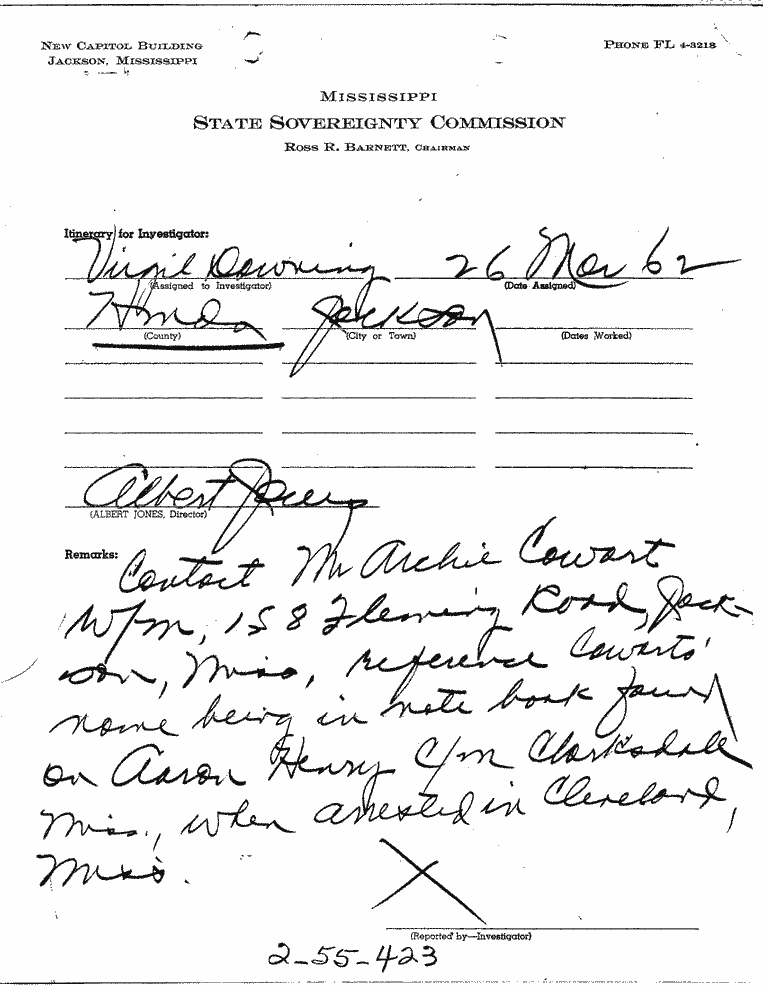 NEW CAPITOL BUILDING
JACKSON, MISSISSIPPI
PHONE FL 4-3218
MISSISSIPPI
STATE SOVEREIGNTY COMMISSION
ROSS R. BARNETT, CHAIRMAN
Itinerary for Investigator:
Virgil Downing 26 Mar 62
(Assigned to Investigator) (Date Assigned)
Hinds Jackson
(County) (City or Town) (Dates Worked)
Albert Jones
(ALBERT JONES, Director)
Remarks:
Contact Mr Archie Cowart
W/m, 158 Fleming Road, Jack-
son, Miss, reference Cowarts'
name being in note book found
on Aaron Henry C/m Clarksdale
Miss., when arrested in Cleveland,
Miss.
(Reported by—Investigator)
2-55-423